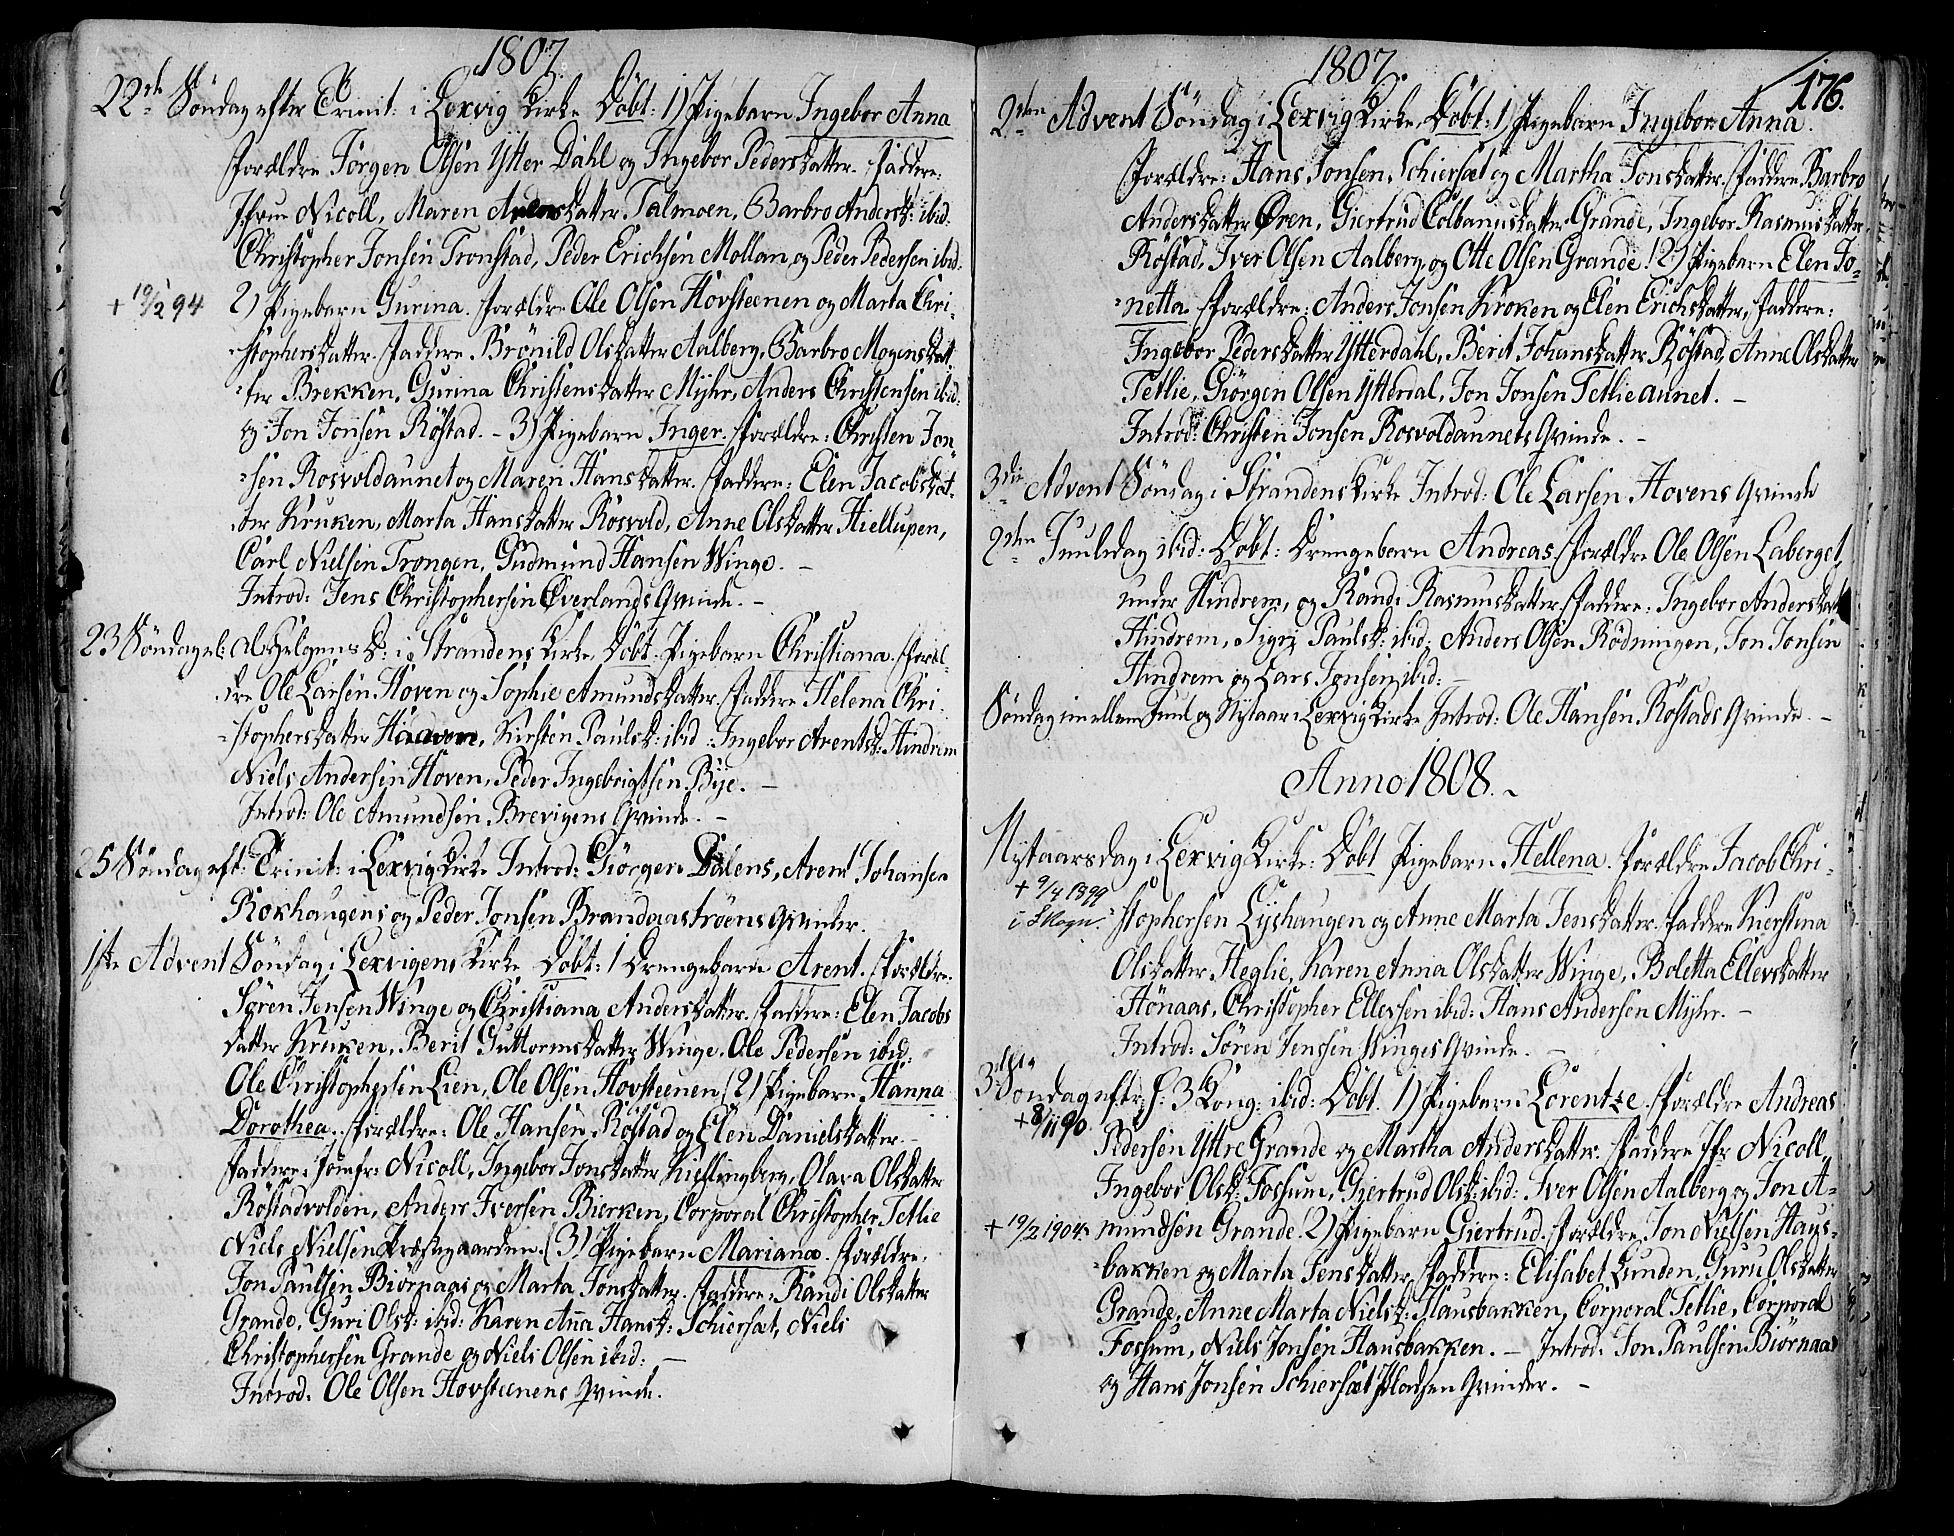 1807
22de Söndag efter Trinit: i Lexvig Kirke Döbt: 1) Pigebarn Ingebor Anna
Forældre Jörgen Olsen Ytter Dahl og Ingebor Pedersdatter. Faddere:
Jfrue Nicoll, Maren datter Talmoen, Barbro Andersd: ibid:
Christopher Jonsen Tronstad, Peder Erichsen Mollan, og Peder Pedersen ibid.
+ 19/2 94
2) Pigebarn Gurina. Forældre Ole Olsen Hovsteenen og Marta Chri-
stophersdatter. Faddere Brönild Olsdatter Aalberg, Barbro Mogensdat
ter Brekken, Gurina Christensdatter Myhr, Anders Christensen ibid:
og Jon Jonsen Röstad. - 3) Pigebarn Inger. Forældre: Christen Jon
sen Rosvoldaunet og Maren Hansdatter. Faddere: Elen Jacobsdat-
ter Kruken, Marta Hansdatter Rosvold, Anne Olsdatter Hiellupen,
Carl Nielsen Trongen, Gudmund Hansen Winge. -
Introd: Jens Christophersen Överlands Qvinde. -
23 Söndag el: Alhelgens D: i Strandens Kirke, Döbt: Pigebarn Christiana. Foræl-
dre Ole Larsen Hoven og Sophie Amundsdatter. Faddere Helena Chri-
stophersdatter Haaven, Kirsten Paulsd: ibid: Ingebor Arentsd: Hindrem
Niels Andersen Hoven, Peder Ingebrigtsen Bye. -
Introd: Ole Amundsen Brevigens Qvinde. -
25 Söndag eft: Trinit: i Lexvig Kirke Introd: Giörgen Dalens, Arent Johansen
Rokhaugens og Peder Jonsen Brandaaströens Qvinder.
1ste Advent Söndag i Lexvigens Kirke Döbt: 1 Drengebarn Arent. Forældre:
Sören Jensen Winge og Christiana Andersdatter. Faddere: Elen Jacobs
datter Kruken, Berit Guttormsdatter Winge, Ole Pedersen ibid:
Ole Christophersen Lien, Ole Olsen Hovsteenen (2) Pigebarn Hanna
Dorothea. Forældre: Ole Hansen Röstad og Elen Danielsdatter. -
Faddere: Jomfr: Nicoll, Ingebor Jonsdatter Kiellingberg, Olava Olsdatter
Röstadvolden, Anders Iversen Bierken, Corporal Christopher Tetlie
Niels Nielsen Præstegaarden. (3) Pigebarn Mariana. Forældre.
Jon Paulsen Biörnaas og Marta Jonsdatter. Faddere: Randi Olsdatter
Grande, Guri Olsd: ibid: Karen Anna Hansd: Schiersæt, Niels
Christophersen Grande og Niels Olsen ibid: -
Introd: Ole Olsen Hovsteenens Qvinde.
1807
176.
2den Advent Söndag i Lexvig Kirke, Döbt: 1, Pigebarn Ingebor Anna.
Forældre: Hans Jonsen Schiersæt og Martha Jonsdatter. Faddere Barbro
Andersdatter Ören, Giertrud Colbanusdatter Grande, Ingebor Rasmusdatter
Röstad, Iver Olsen Aalberg, og Otte Olsen Grande! 2) Pigebarn Elen Jo-
netta. Forældre: Anders Jonsen Kroken og Elen Erichsdatter, Faddere:
Ingebor Pedersdatter Ytterdahl, Berit Johansdatter Röstad, Anne Olsdatter
Tetlie, Giörgen Olsen Ytterdal, Jon Jonsen Tetlieaunet. -
Introd: Christen Jonsen Rosvoldaunets Qvinde. -
3die Advent Söndag i Strandens Kirke Introd: Ole Larsen Hovens Qvinde
2den Juuledag ibid: Döbt: Drengebarn Andreas. Forældre Ole Olsen Laberget
under Hindrem, og Randi Rasmusdatter. Faddere: Ingebor Andersdatt
Hindrem, Sigri Paulsd: ibid: Anders Olsen Rödningen, Jon Jonsen
Hindrem og Lars Jonsen ibid: -
Söndag imellem Juul og Nytaar i Lexvig Kirke Introd: Ole Hansen Röstads Qvinde. -
Anno 1808.
Nytaarsdag i Lexvig Kirke: Döbt Pigebarn Hellena. Forældre Jacob Chri-
+ 9/4 1899
i Skogn.
stophersen Lyshaugen og Anne Marta Jensdatter. Faddere Kierstina
Olsdatter Heglie, Karen Anna Olsdatter Winge, Boletta Ellevsdatter
Hönaas, Christopher Ellevsen ibid: Hans Andersen Myhr. -
Introd: Sören Jensen Winges Qvinde. -
3die Söndag eftr: H: 3 Kong: ibid: Döbt. 1) Pigebarn Lorentze. Forældre Andreas
+ 8/11 90.
Pedersen Yttre Grande og Martha Andersdatter. Faddere Jfr Nicoll,
Ingebor Olsd: Fossum, Giertrud Olsd: ibid: Iver Olsen Aalberg og Jon A-
+ 19/2 1904.
mundsen Grande. 2) Pigebarn Giertrud. Forældre, Jon Nielsen Haus-
bakken og Marta Jensdatter. Faddere: Elisabet Lunden, Guru Olsdatter
Grande, Anne Marta Nielsd: Hausbakken, Corporal Tetlie, Corporal
Fossum, Niels Jonsen Hausbakken. - Introd: Jon Paulsen Biörnaas
og Hans Jonsen Schiersæt Pladsen Qvinder. -